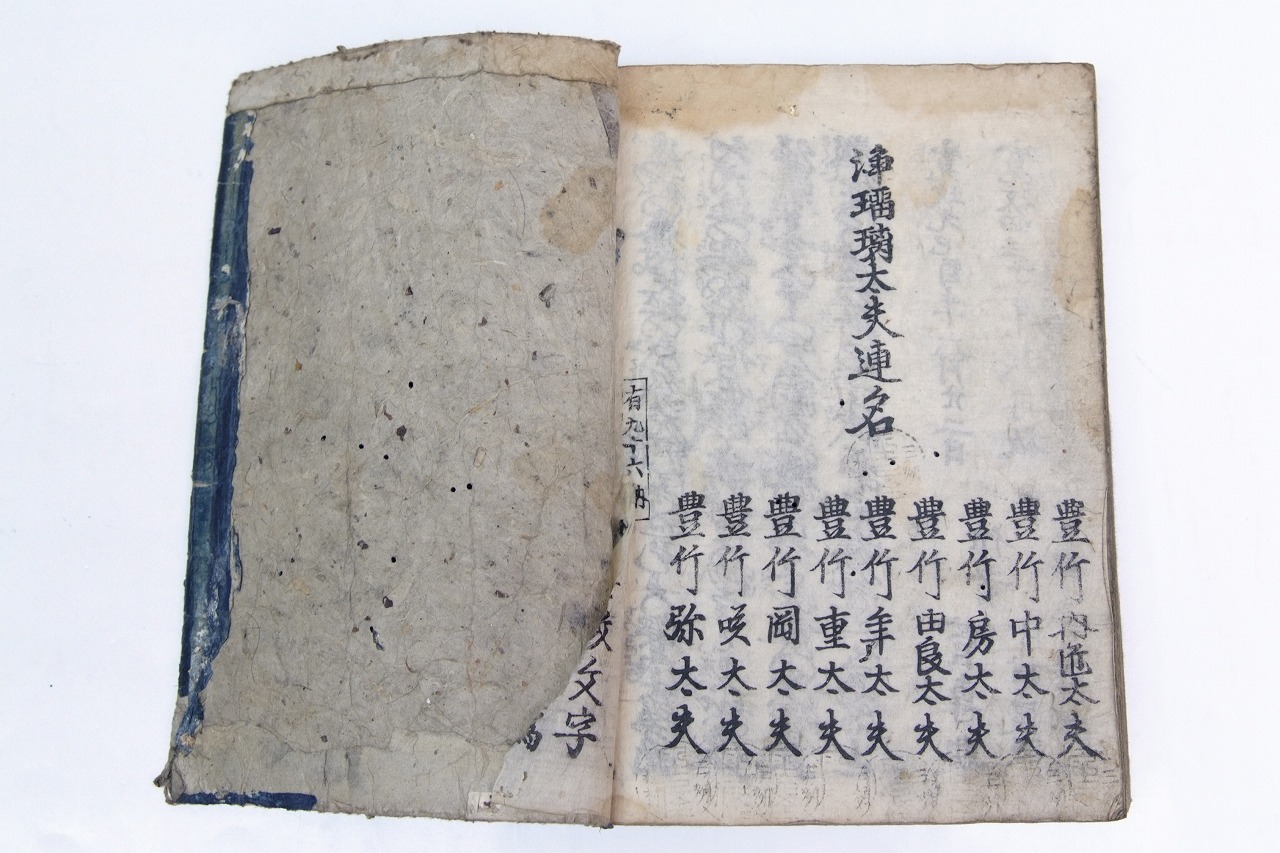 浄瑠璃太夫連名
豊竹内匠太夫
豊竹中太夫
豊竹房太夫
豊竹由良太夫
豊竹年太夫
豊竹重太夫
豊竹岡太夫
豊竹咲太夫
豊竹弥太夫
有九十六内
文字